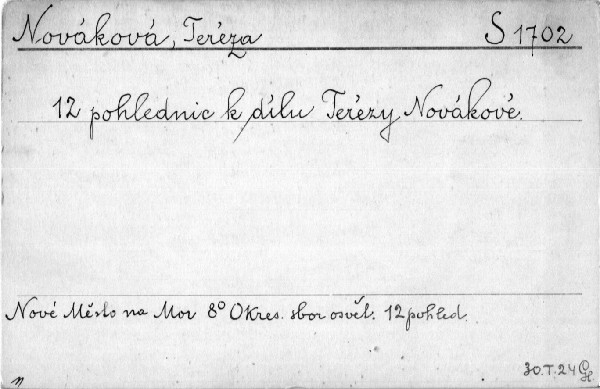 Nováková, Teréza S 1702
12 pohlednic k dílu Terézy Novákové.
Nové Město na Mor 8° Okres. sbor osvět. 12 pohled.
30.T.24